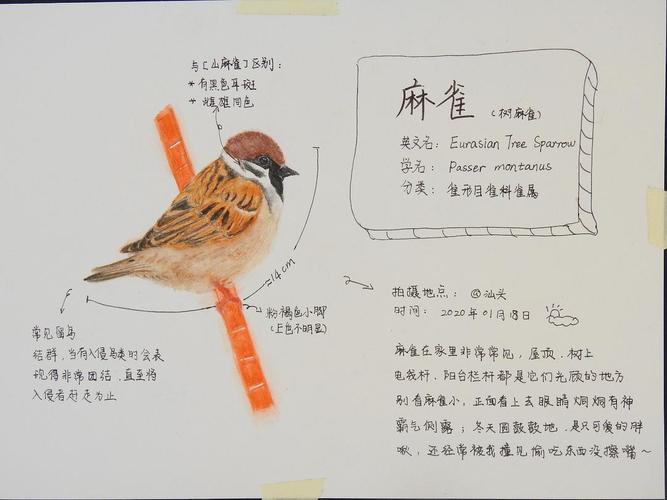 与［山麻雀］区别：
* 有黑色耳斑
* 雌雄同色
麻雀（树麻雀）
英文名： Eurasian Tree Sparrow
学名： Passer montanus
分类： 雀形目雀科雀属
≈14cm
粉褐色小脚
（上色不明显）
常见留鸟
结群，当有入侵鸟类时会表
现得非常团结，直至将
入侵者赶走为止
拍摄地点： @汕头
时间： 2020年01月18日
麻雀在家里非常常见，屋顶．树上
电线杆．阳台栏杆都是它们光顾的地方
别看麻雀小，正面看上去眼睛炯炯有神
霸气侧露；冬天圆鼓鼓地，是只可爱的胖
啾，还经常被我撞见偷吃东西没擦嘴～